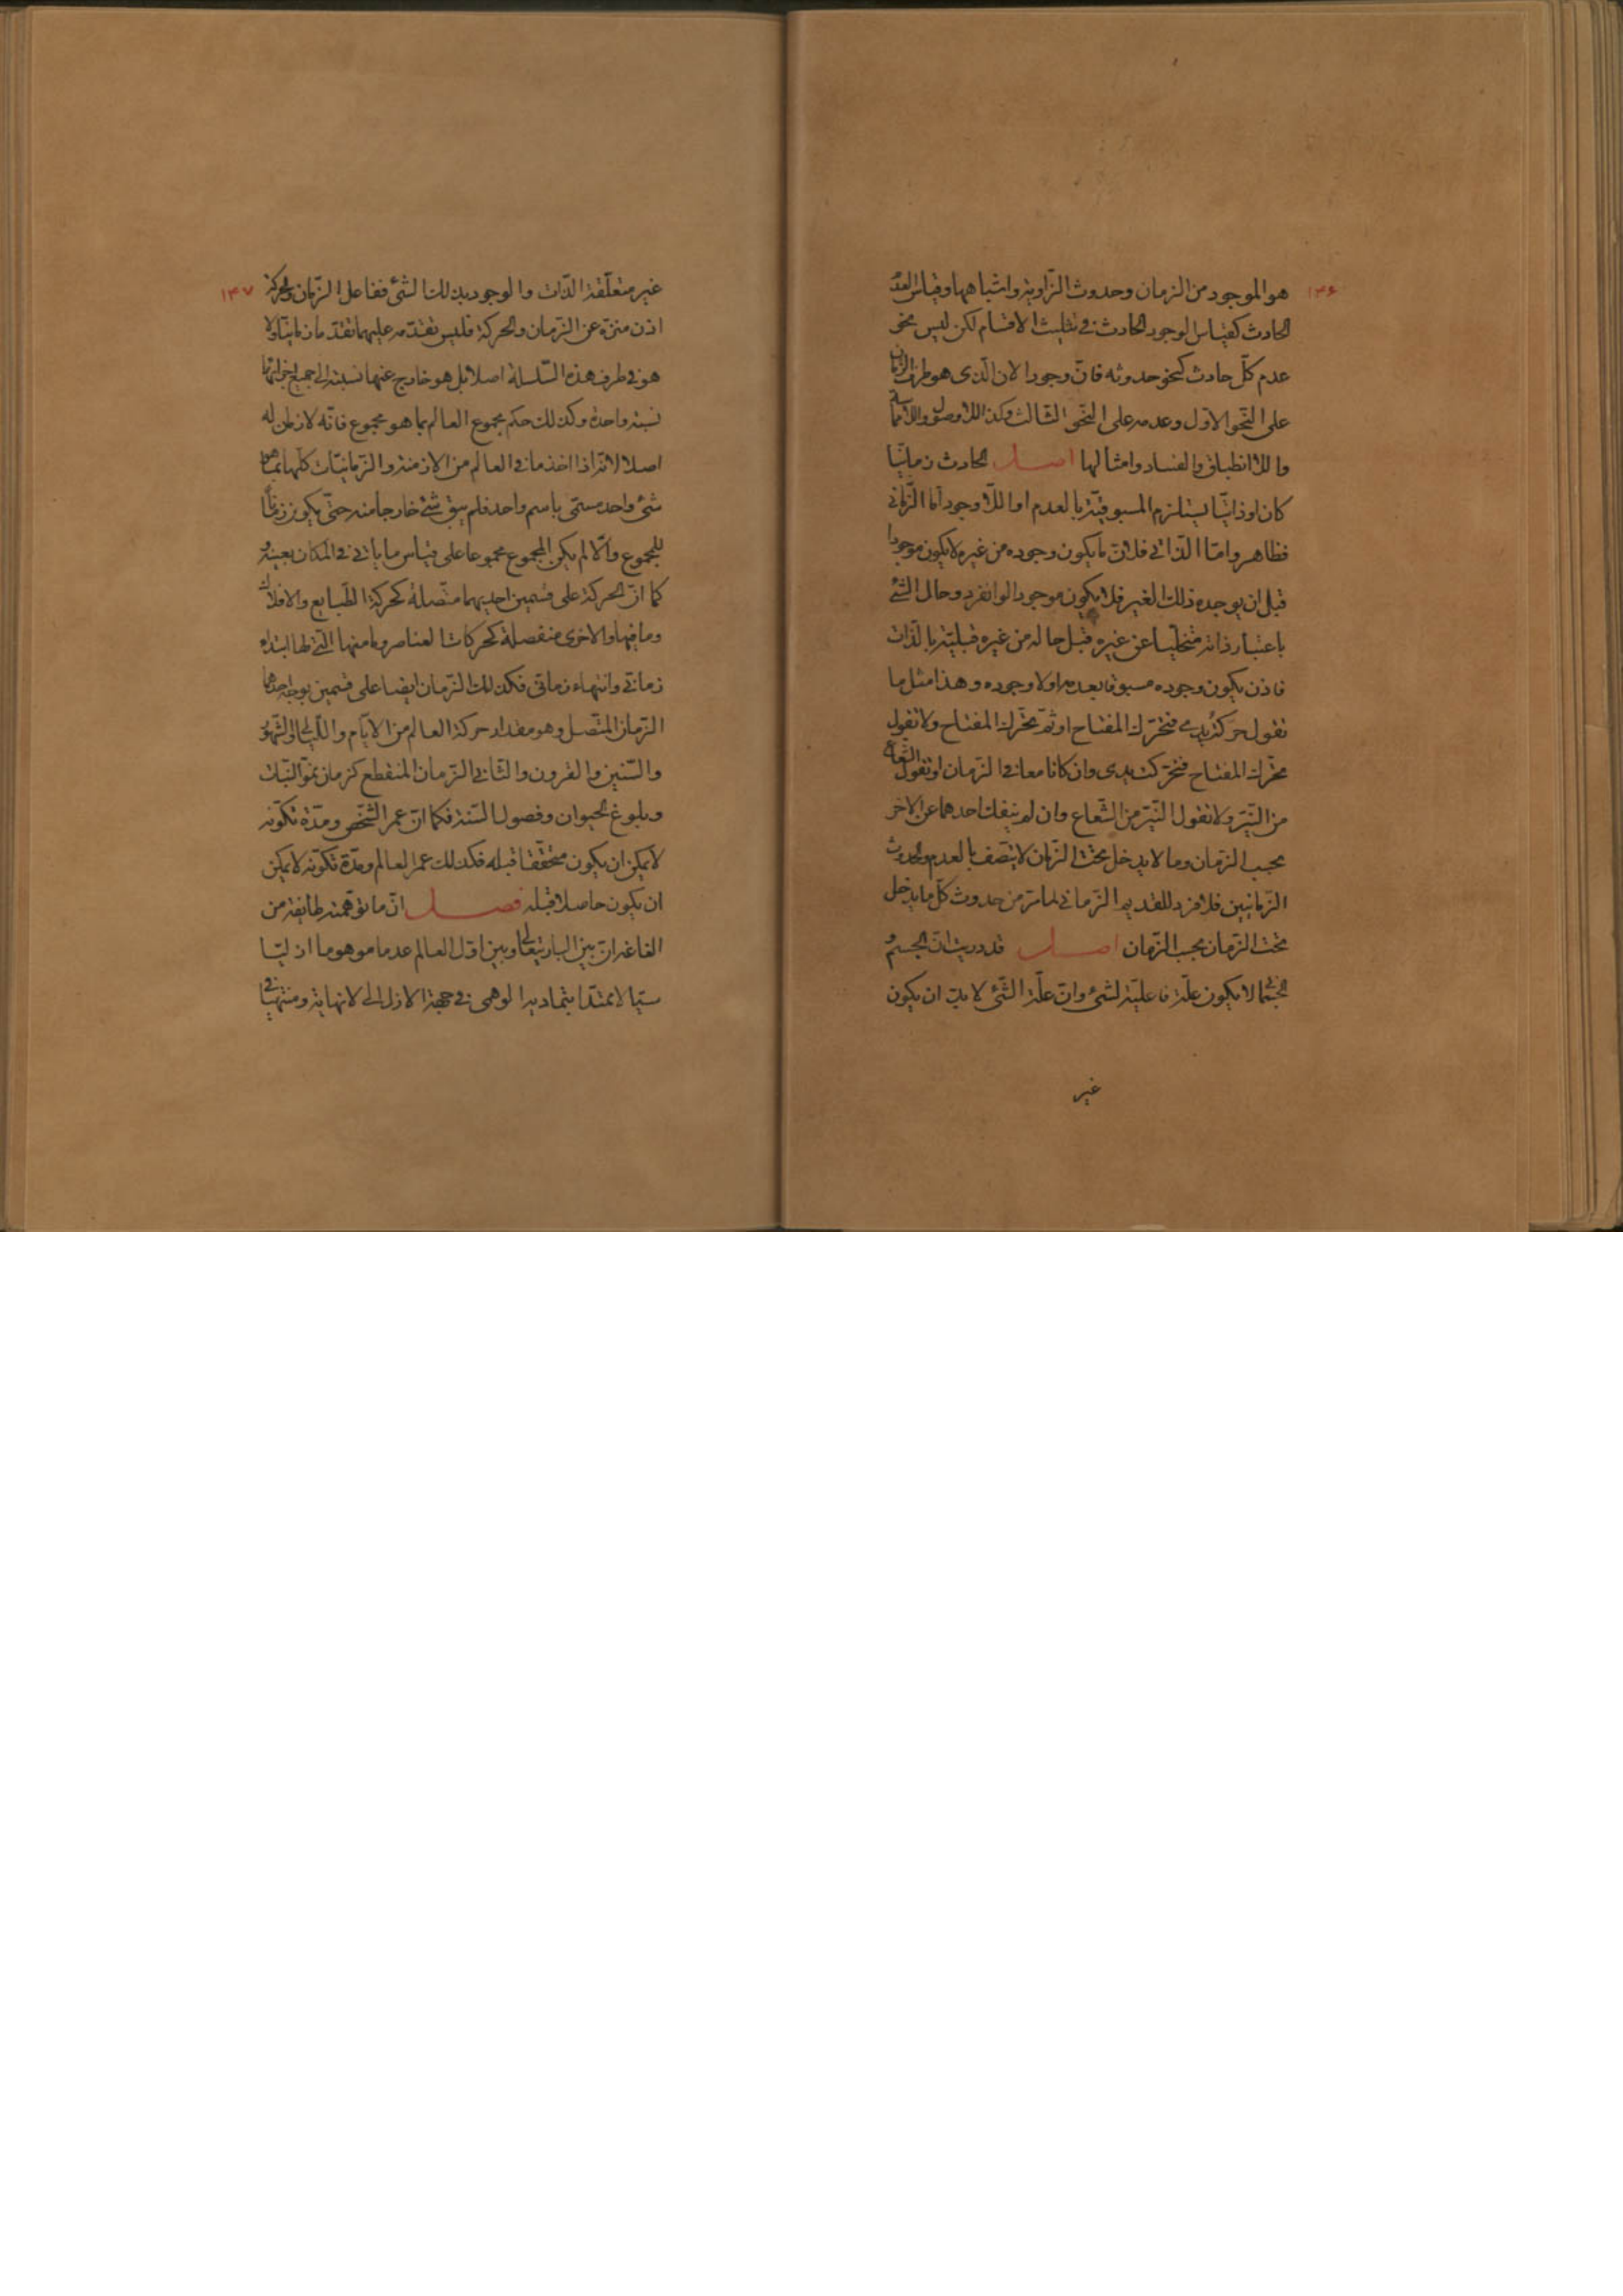 ۱۴۶
هو الموجود من الزمان وحدوث الزّاوية واشباهها وقياس العدم
الحادث كقياس الوجود الحادث في تثليث الاقسام لكن ليس نحو
عدم كلّ حادث كنحو حدوثه فانّ وجود الان الّذى هو طرف الزمان
على النّحو الاوّل وعدمه على النّحو الثالث وكذا اللاوصول واللامماسة
واللاانطباق والفساد وامثالها اصل الحادث زمانيّا
كان او ذاتيّا يستلزم المسبوقيّة بالعدم او اللّاوجود امّا الزّمانى
فظاهر وامّا الذّاتى فلانّ ما يكون وجوده من غيره لا يكون موجودا
قبل ان يوجده ذلك الغير فلا يكون موجودا لو انفرد وحال الشئ
باعتبار ذاته متخلّيا عن غيره قبل حاله من غيره قبليّة بالذّات
فاذن يكون وجوده مسبوقا بعدمه اولا وجوده وهذا مثل ما
نقول حركت يدى فتحرّك المفتاح او ثمّ تحرّك المفتاح ولا نقول
تحرّك المفتاح فتحرّكت يدى وان كانا معا فى الزمان او نقول الشّعاع
من النيّر ولا نقول النيّر من الشّعاع وان لم ينفك احدهما عن الاخر
بحسب الزمان وما لا يدخل تحت الزّمان لا يتّصف بالعدم والحدوث
الزّمانيين فلا فرد للقديم الزّمانى لما مرّ من حدوث كلّ ما يدخل
تحت الزمان بحسب الزّمان اصل قد دريت انّ الجسم و
الجسمانى لا يكون علّة فاعليّة لشئ وانّ علّة الشّئ لا بدّ ان يكون
غير
۱۴۷
غير متعلّقة الذّات والوجود بذلك الشئ ففاعل الزّمان والحركة
اذن منزّه عن الزّمان والحركة فليس تقدّمه عليهما تقدّما زمانيّا ولا
هو فى طرف هذه السّلسلة اصلا بل هو خارج عنها نسبته الى جميع اجزائها
نسبة واحدة وكذلك حكم مجموع العالم بما هو مجموع فانّه لا زمان له
اصلا لانّه اذا اخذ ما فى العالم من الازمنة والزّمانيّات كلّها بما هو
شئ واحد مسمّى باسم واحد فلم يبق شئ خارجا منه حتّى يكون زمانا
للمجموع والّا لم يكن المجموع مجموعا على قياس ما ياتى فى المكان بعينه و
كما انّ الحركة على قسمين احديهما متّصلة كحركة الطّبايع والافلاك
وما فيها والاخرى منفصلة كحركات العناصر وما منها الّتى لها ابتداء
زمانى وانتهاء زمانى فكذلك الزّمان ايضا على قسمين بوجه احدهما
الزّمان المتّصل وهو مقدار حركة العالم من الايّام واللّيالى والشّهور
والسّنين والقرون والثانى الزّمان المنقطع كزمان نموّ النّبات
وبلوغ الحيوان وفصول السّنة فكما انّ عمر الشّخص ومدّة تكوّنه
لا يمكن ان يكون متحقّقا قبله فكذلك عمر العالم ومدّة تكوّنه لا يمكن
ان يكون حاصلا قبله فصل انّ ما توهّمته طايفة من
الفاغة انّ بين البارى تعالى وبين اوّل العالم عدما موهوما ازليّا
سيّالا ممتدّا بتماديه الوهمى فى جهة الازل الى لا نهاية ومنتهيا فى